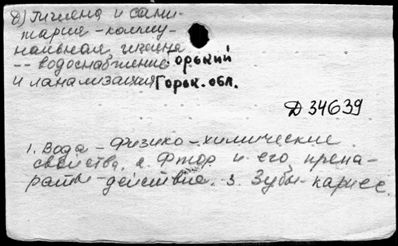 8) Гигиена и сани-
тария - комму-
нальная гигиена
-- водоснабжение орький
и канализация Горьк. обл.
Д 34639
1. Вода - Физико-химические
свойства. 2. Фтор и его препа-
раты - действие. 3. Зубы - кариес.